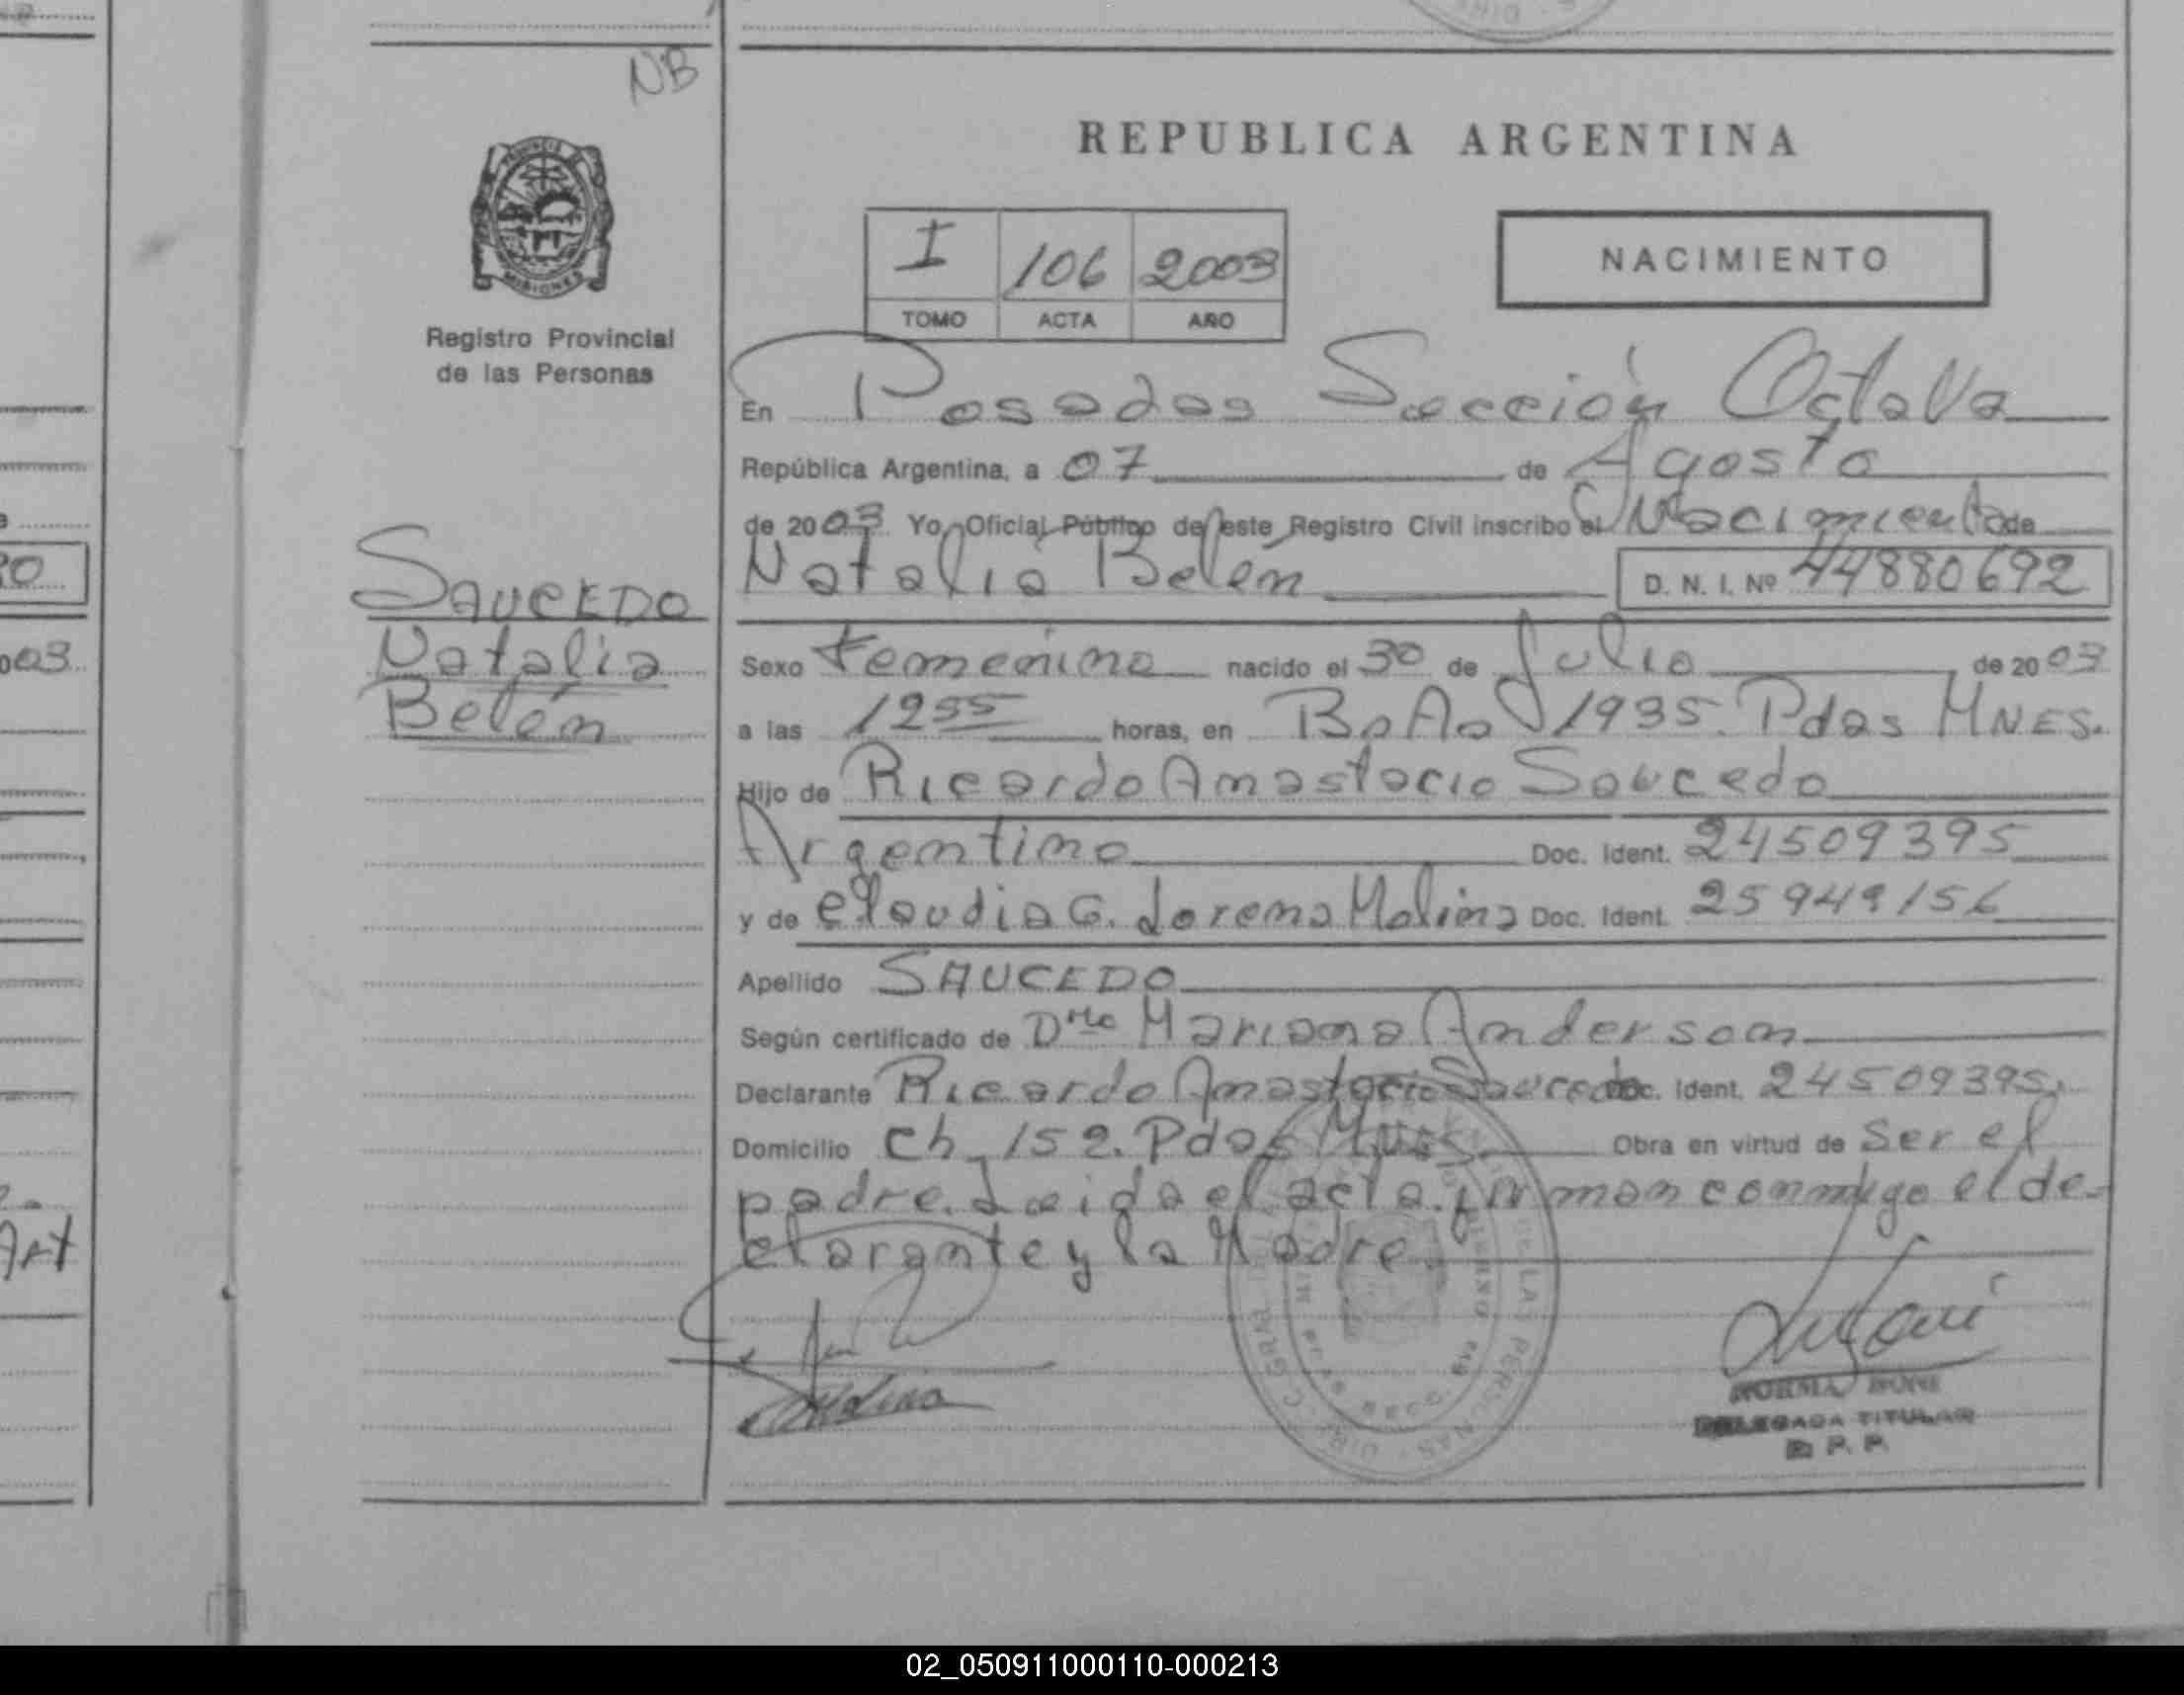 NB
PROVINCIA DE
MISIONES
Registro Provincial
de las Personas
SAUCEDO
Natalia
Belén
REPUBLICA ARGENTINA
I 106 2003
TOMO ACTA AÑO
NACIMIENTO
En Posadas Sección Octava
República Argentina, a 07 de Agosto
de 2003 Yo, Oficial Público de este Registro Civil inscribo el Nacimiento de
Natalia Belén D. N. I. Nº 44880692
Sexo Femenino nacido el 30 de Julio de 2003
a las 1255 horas, en Bo Ao 1935. Pdas MNES.
Hijo de Ricardo Anastacio Saucedo
Argentino Doc. Ident. 24509395
y de Claudia G. Lorena Molina Doc. Ident. 25949156
Apellido SAUCEDO
Según certificado de Dra Mariana Anderson
Declarante Ricardo Anastacio Saucedo Doc. Ident. 24509395.
Domicilio Ch. 152. Pdas Mnes. Obra en virtud de Ser el
padre. Leida el acta. firman conmigo el de-
clarante y la Madre.
NORMA
DELEGADA TITULAR
R. P. P.
003
Art
02_050911000110-000213